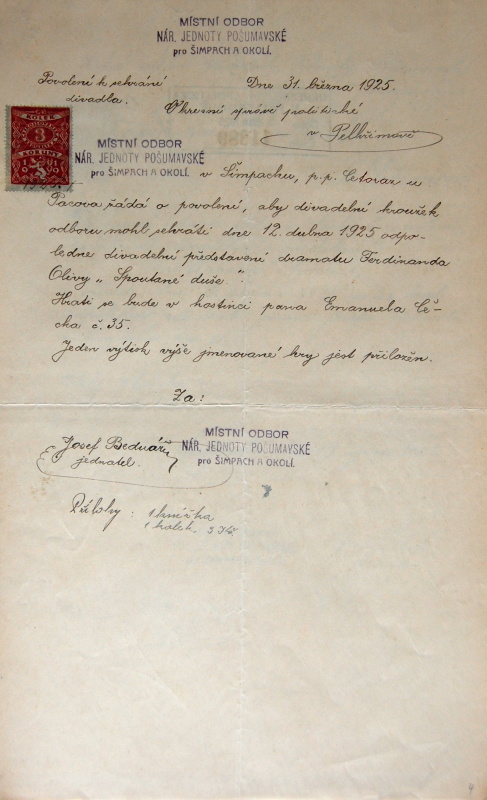 MÍSTNÍ ODBOR
NÁR. JEDNOTY POŠUMAVSKÉ
pro ŠIMPACH A OKOLÍ.
Povolení k sehrání
divadla.
Dne 31. března 1925.
Okresní správě politické
v Pelhřimově
KOLEK
3
KORUNY
MÍSTNÍ ODBOR
NÁR. JEDNOTY POŠUMAVSKÉ
pro ŠIMPACH A OKOLÍ.
v Šimpachu, p.p. Cetoraz u
Pacova žádá o povolení, aby divadelní kroužek
odboru mohl sehráti dne 12. dubna 1925 odpo-
ledne divadelní představení dramatu Ferdinanda
Olivy „Spoutané duše“.
Hráti se bude v hostinci pana Emanuela Če-
cha č. 35.
Jeden výtisk výše jmenované hry jest přiložen.
Za:
MÍSTNÍ ODBOR
NÁR. JEDNOTY POŠUMAVSKÉ
pro ŠIMPACH A OKOLÍ.
Josef Bednář
jednatel.
Přílohy: 1 knížka
1 kolek 3 Kč